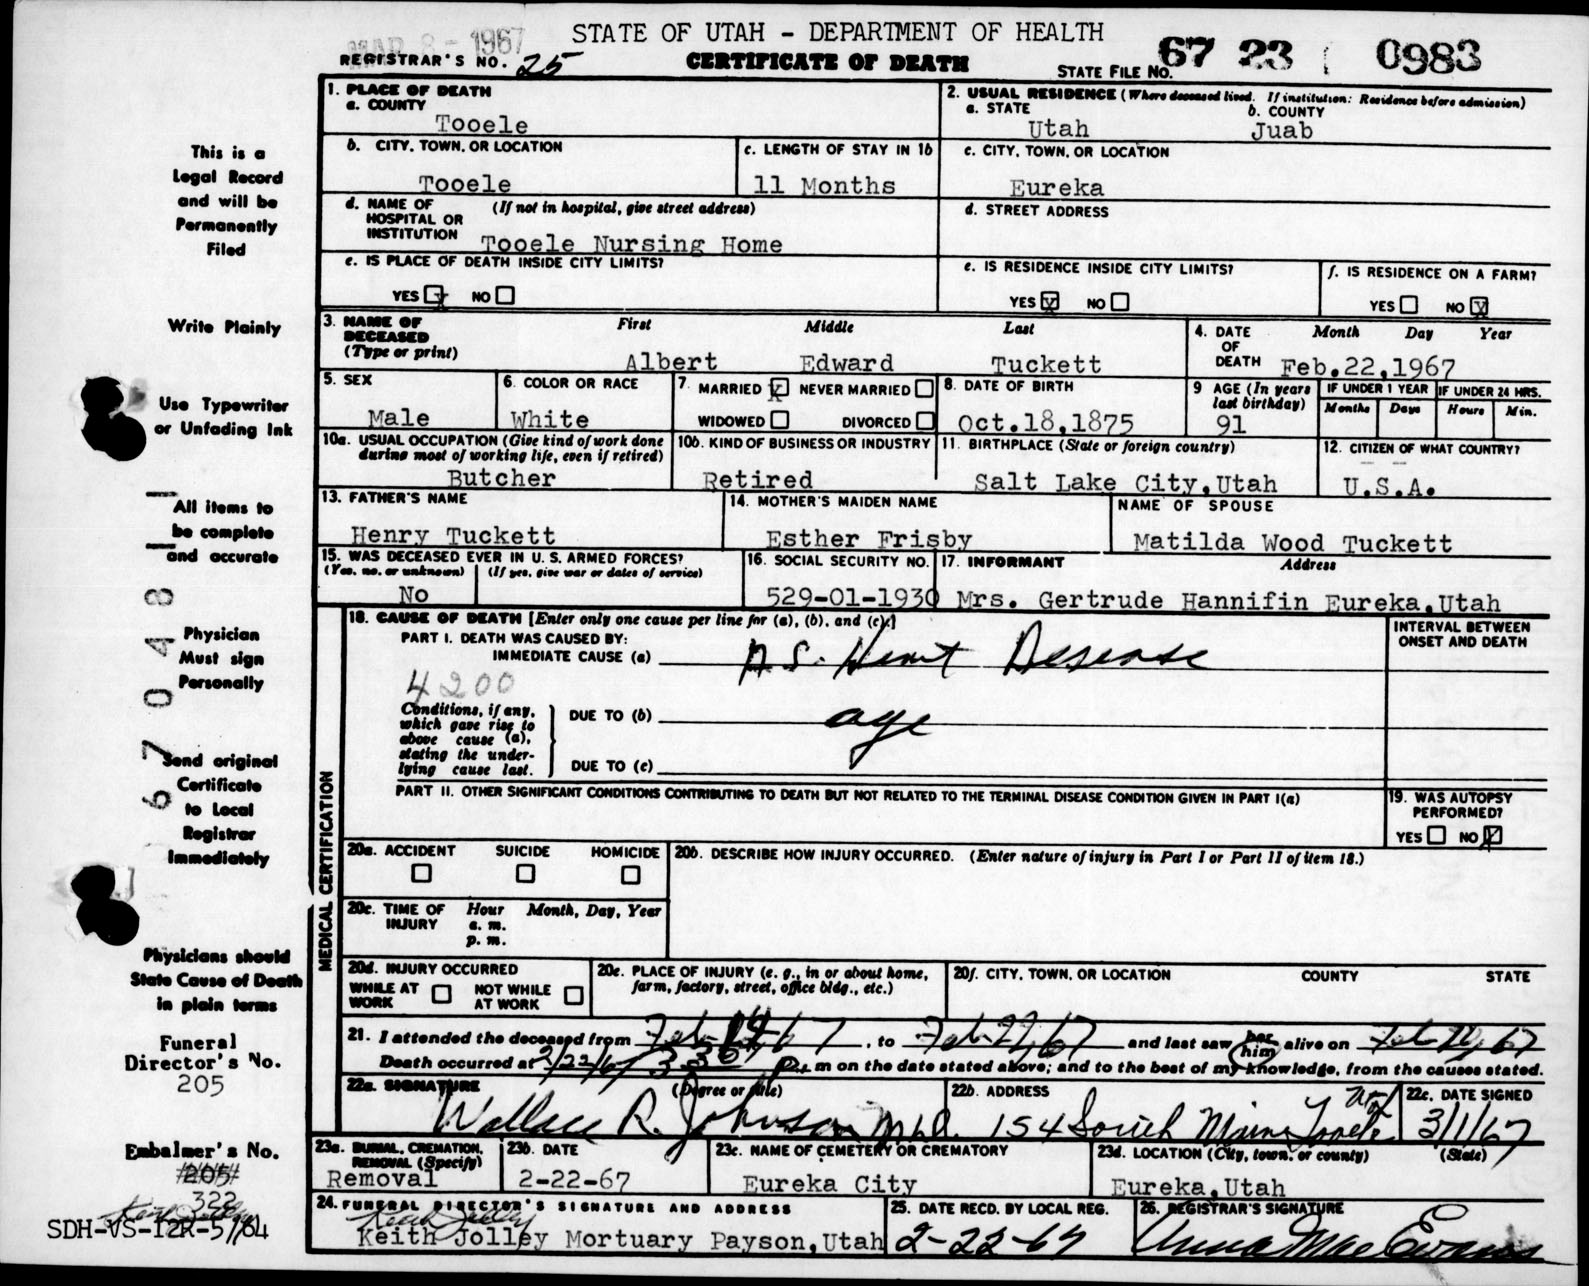 MAR 8 - 1967
STATE OF UTAH - DEPARTMENT OF HEALTH
REGISTRAR'S NO. 25
CERTIFICATE OF DEATH
STATE FILE NO. 67 23 0983
1. PLACE OF DEATH
a. COUNTY
Tooele
2. USUAL RESIDENCE (Where deceased lived. If institution: Residence before admission)
a. STATE b. COUNTY
Utah Juab
b. CITY, TOWN, OR LOCATION
Tooele
c. LENGTH OF STAY IN 1b
11 Months
c. CITY, TOWN, OR LOCATION
Eureka
d. NAME OF HOSPITAL OR INSTITUTION (If not in hospital, give street address)
Tooele Nursing Home
d. STREET ADDRESS
e. IS PLACE OF DEATH INSIDE CITY LIMITS?
YES X NO
e. IS RESIDENCE INSIDE CITY LIMITS?
YES X NO
f. IS RESIDENCE ON A FARM?
YES NO X
3. NAME OF DECEASED (Type or print)
First Middle Last
Albert Edward Tuckett
4. DATE OF DEATH Month Day Year
Feb.22,1967
5. SEX
Male
6. COLOR OR RACE
White
7. MARRIED X NEVER MARRIED
WIDOWED DIVORCED
8. DATE OF BIRTH
Oct.18,1875
9 AGE (In years last birthday)
91
IF UNDER 1 YEAR
Months Days
IF UNDER 24 HRS.
Hours Min.
10a. USUAL OCCUPATION (Give kind of work done during most of working life, even if retired)
Butcher
10b. KIND OF BUSINESS OR INDUSTRY
Retired
11. BIRTHPLACE (State or foreign country)
Salt Lake City,Utah
12. CITIZEN OF WHAT COUNTRY?
U.S.A.
13. FATHER'S NAME
Henry Tuckett
14. MOTHER'S MAIDEN NAME
Esther Frisby
NAME OF SPOUSE
Matilda Wood Tuckett
15. WAS DECEASED EVER IN U. S. ARMED FORCES?
(Yes, no, or unknown) (If yes, give war or dates of service)
No
16. SOCIAL SECURITY NO.
529-01-1930
17. INFORMANT Address
Mrs. Gertrude Hannifin Eureka,Utah
18. CAUSE OF DEATH [Enter only one cause per line for (a), (b), and (c).]
INTERVAL BETWEEN ONSET AND DEATH
PART I. DEATH WAS CAUSED BY:
IMMEDIATE CAUSE (a) A.S. Heart Disease
4200
Conditions, if any, which gave rise to above cause (a), stating the underlying cause last.
DUE TO (b) age
DUE TO (c)
PART II. OTHER SIGNIFICANT CONDITIONS CONTRIBUTING TO DEATH BUT NOT RELATED TO THE TERMINAL DISEASE CONDITION GIVEN IN PART I(a)
19. WAS AUTOPSY PERFORMED?
YES NO X
MEDICAL CERTIFICATION
20a. ACCIDENT SUICIDE HOMICIDE
20b. DESCRIBE HOW INJURY OCCURRED. (Enter nature of injury in Part I or Part II of item 18.)
20c. TIME OF INJURY Hour Month, Day, Year
a. m.
p. m.
20d. INJURY OCCURRED
WHILE AT WORK NOT WHILE AT WORK
20e. PLACE OF INJURY (e. g., in or about home, farm, factory, street, office bldg., etc.)
20f. CITY, TOWN, OR LOCATION COUNTY STATE
21. I attended the deceased from Feb 67, to Feb 22/67 and last saw her him alive on Feb 67
Death occurred at 2/22/67 P m on the date stated above; and to the best of my knowledge, from the causes stated.
22a. SIGNATURE (Degree or title)
Wallace R. Johnson M.D.
22b. ADDRESS
154 South Main Tooele Utah
22c. DATE SIGNED
3/1/67
23a. BURIAL, CREMATION, REMOVAL (Specify)
Removal
23b. DATE
2-22-67
23c. NAME OF CEMETERY OR CREMATORY
Eureka City
23d. LOCATION (City, town, or county) (State)
Eureka,Utah
24. FUNERAL DIRECTOR'S SIGNATURE AND ADDRESS
Keith Jolley
Keith Jolley Mortuary Payson,Utah
25. DATE RECD. BY LOCAL REG.
2-22-67
26. REGISTRAR'S SIGNATURE
Anna Mae Evans
This is a
Legal Record
and will be
Permanently
Filed
Write Plainly
Use Typewriter
or Unfading Ink
All items to
be complete
and accurate
Physician
Must sign
Personally
Send original
Certificate
to Local
Registrar
Immediately
67 048
Physicians should
State Cause of Death
in plain terms
Funeral
Director's No.
205
Embalmer's No.
205
322
SDH-VS-12R-5/64